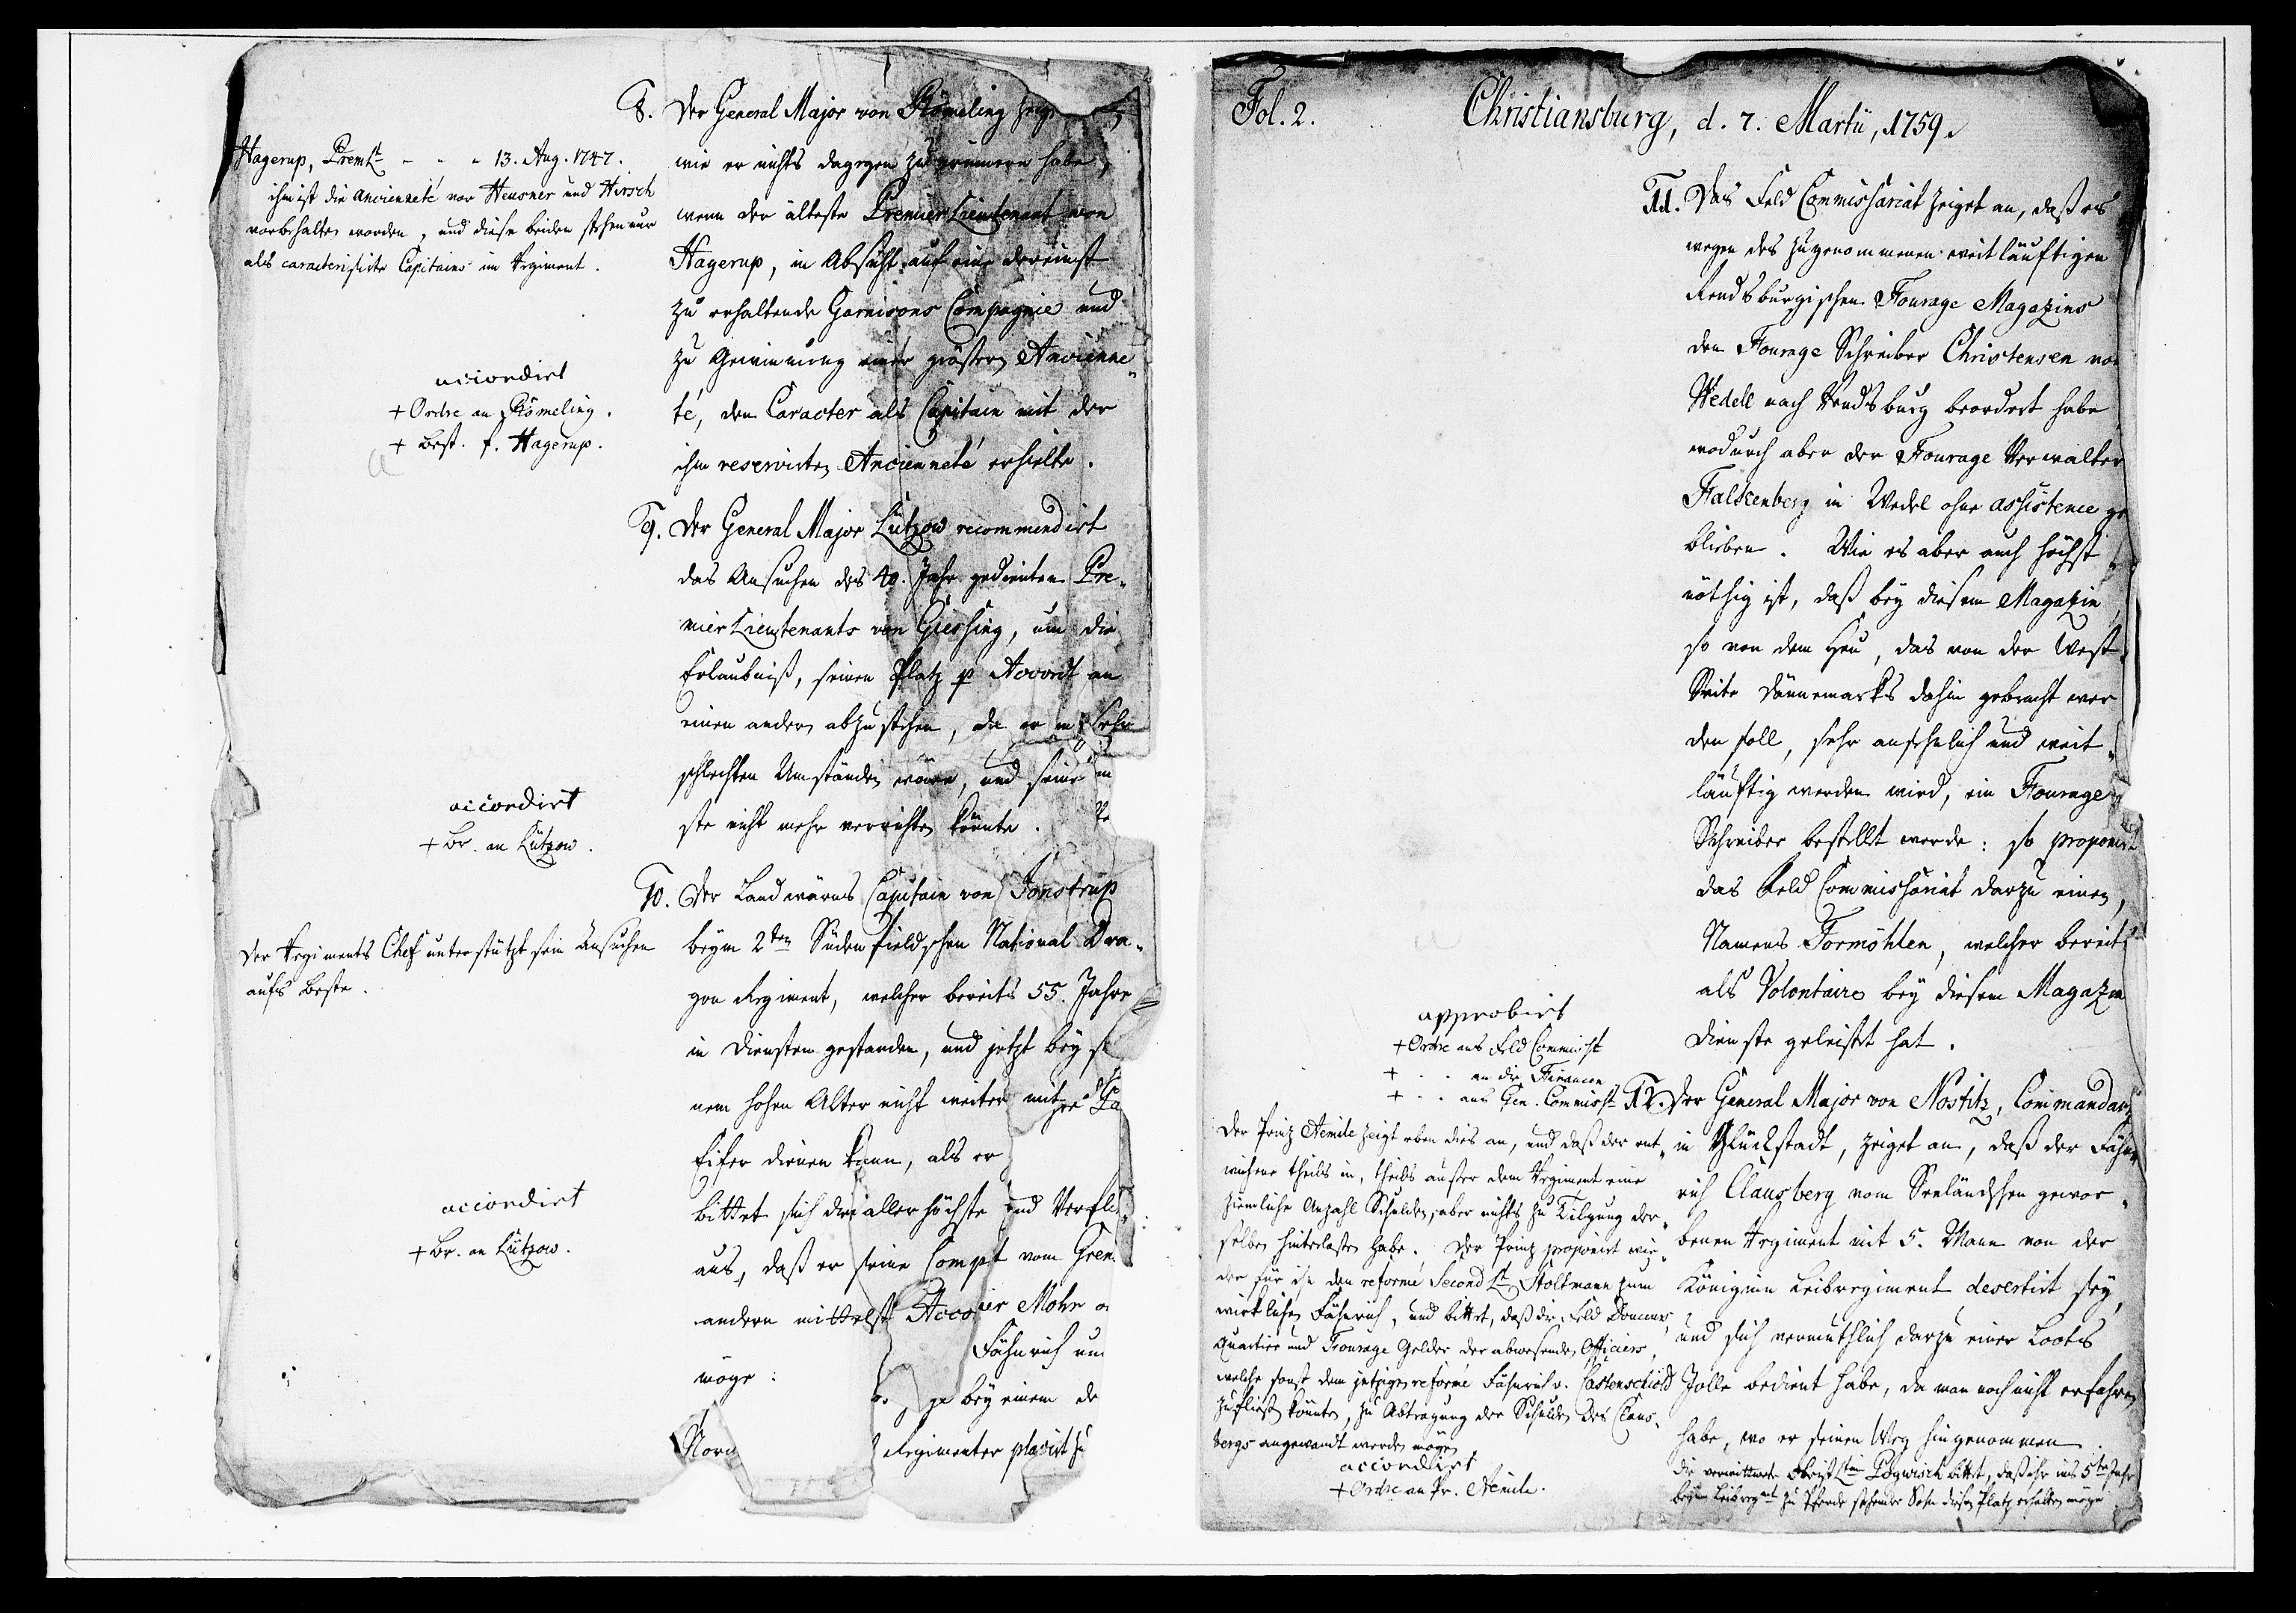 8. Der General Major von Römeling zeig
wie er nichts dagegen zu erinnern habe,
wenn der älteste Premier Lieutenant von
Hagerup, in Absicht auf eine dereinst
zu erhaltende Garnisons Compagnie und
zu Gewinnung einer größern Ancienne„
té, den Caracter als Capitain mit der
ihm reservirten Ancienneté erhielte.
Hagerup, PremLt - - - 13. Aug. 1747.
ihm ist die ancienneté vor Heusner und Hirsch
vorbehalten worden, und diese beiden stehen nur
als caracterisirte Capitains im Regiment.
accordirt
+ Ordre an Römeling.
+ Best. f. Hagerup.
9. Der General Major Lützow recommendirt
das Ansuchen des 40. Jahr gedienten Pre„
mier Lieutenants von Giessing, um die
Erlaubniß, seinen Platz p Accord an
einen andern abzustehen, da er in sehr
schlechten Umständen wäre, und seine
ste nicht mehr verrichten könnte.
accordirt
+ Br. an Lützow.
10. Der Landwärns Capitain von Jonstrup
beym 2ten Südenfieldschen National Dra„
gon Regiment, welcher bereits 55. Jahre
in Diensten gestanden, und jetzt bey se
nem hohen Alter nicht weiter mit
Eifer dienen kann, als er
bittet sich die allerhöchste und
aus, daß er seine Comp. vom Gren
andern mittelst Acco ier Mohr
Fähnrich
möge:
bey einem de
Nor Regimenter placirt zu
Der Regiments Chef unterstützt sein Ansuchen
aufs beste.
accordirt
+ Br. an Lützow.
Fol. 2. Christiansburg, d. 7. Martii, 1759.
11. Das Feld Commissariat zeiget an, daß es
wegen des zugenommenen weitläuftigen
Rendsburgischen Fourage Magazins
den Fourage Schreiber Christensen von
Wedell nach Rendsburg beordert habe
wodurch aber der Fourage Verwalter
Falkenberg in Wedel ohne assistence ge
blieben. Wie es aber auch höchst
nöthig ist, daß bey diesem Magazin,
so von dem Heu, das von der West„
Seite Dännemarks dahin gebracht wer
den soll, sehr ansehnlich und weit„
läuftig werden wird, ein Fourage
Schreiber bestellt werde: so proponirt
das Feld Commissariat darzu einen,
Namens Tormöhlen, welcher bereits
als Volontaire bey diesem Magazin
Dienste geleistet hat.
approbirt
+ Ordre ans Feld Commisst
+ - - an die Financen
+ - - ans Gen. Commisst
12. Der General Major von Nostitz, Commandant
in Glückstadt, zeiget an, daß der Fähn„
rich Clausberg vom Seeländschen gewor„
benen Regiment mit 5. Mann von der
Königinn Leibregiment desertirt sey,
und sich vermuthlich darzu einer Loots
Jolle bedient habe, da man noch nicht erfahren
habe, wo er seinen Weg hingenommen.
Die verwittwete ObristLtin Pogwisch bittet, daß ihr ins 5te Jahr
beym Leibregmt zu Pferde stehender Sohn diesen Platz erhalten möge
Der Prinz Aemile zeigt eben dies an, und daß der ent„
wichene theils in, theils außer dem Regiment eine
ziemliche Anzahl Schulden, aber nichts zu Tilgung der„
selben hinterlassen habe. Der Prinz proponirt wie„
der für ihn den reformé Second Lt Holtmann zum
wirklichen Fähnrich, und bittet, daß die Feld Douceur,
Quartier und Fourage Gelder der abwesenden Officiers,
welche sonst dem jetzigen reformé Fähnrich v. Castenschiold
zufließen könnten, zu Abtragung der Schulden des Claus„
bergs angewandt werden mögen
accordirt
+ Ordre an Pr. Aemile.